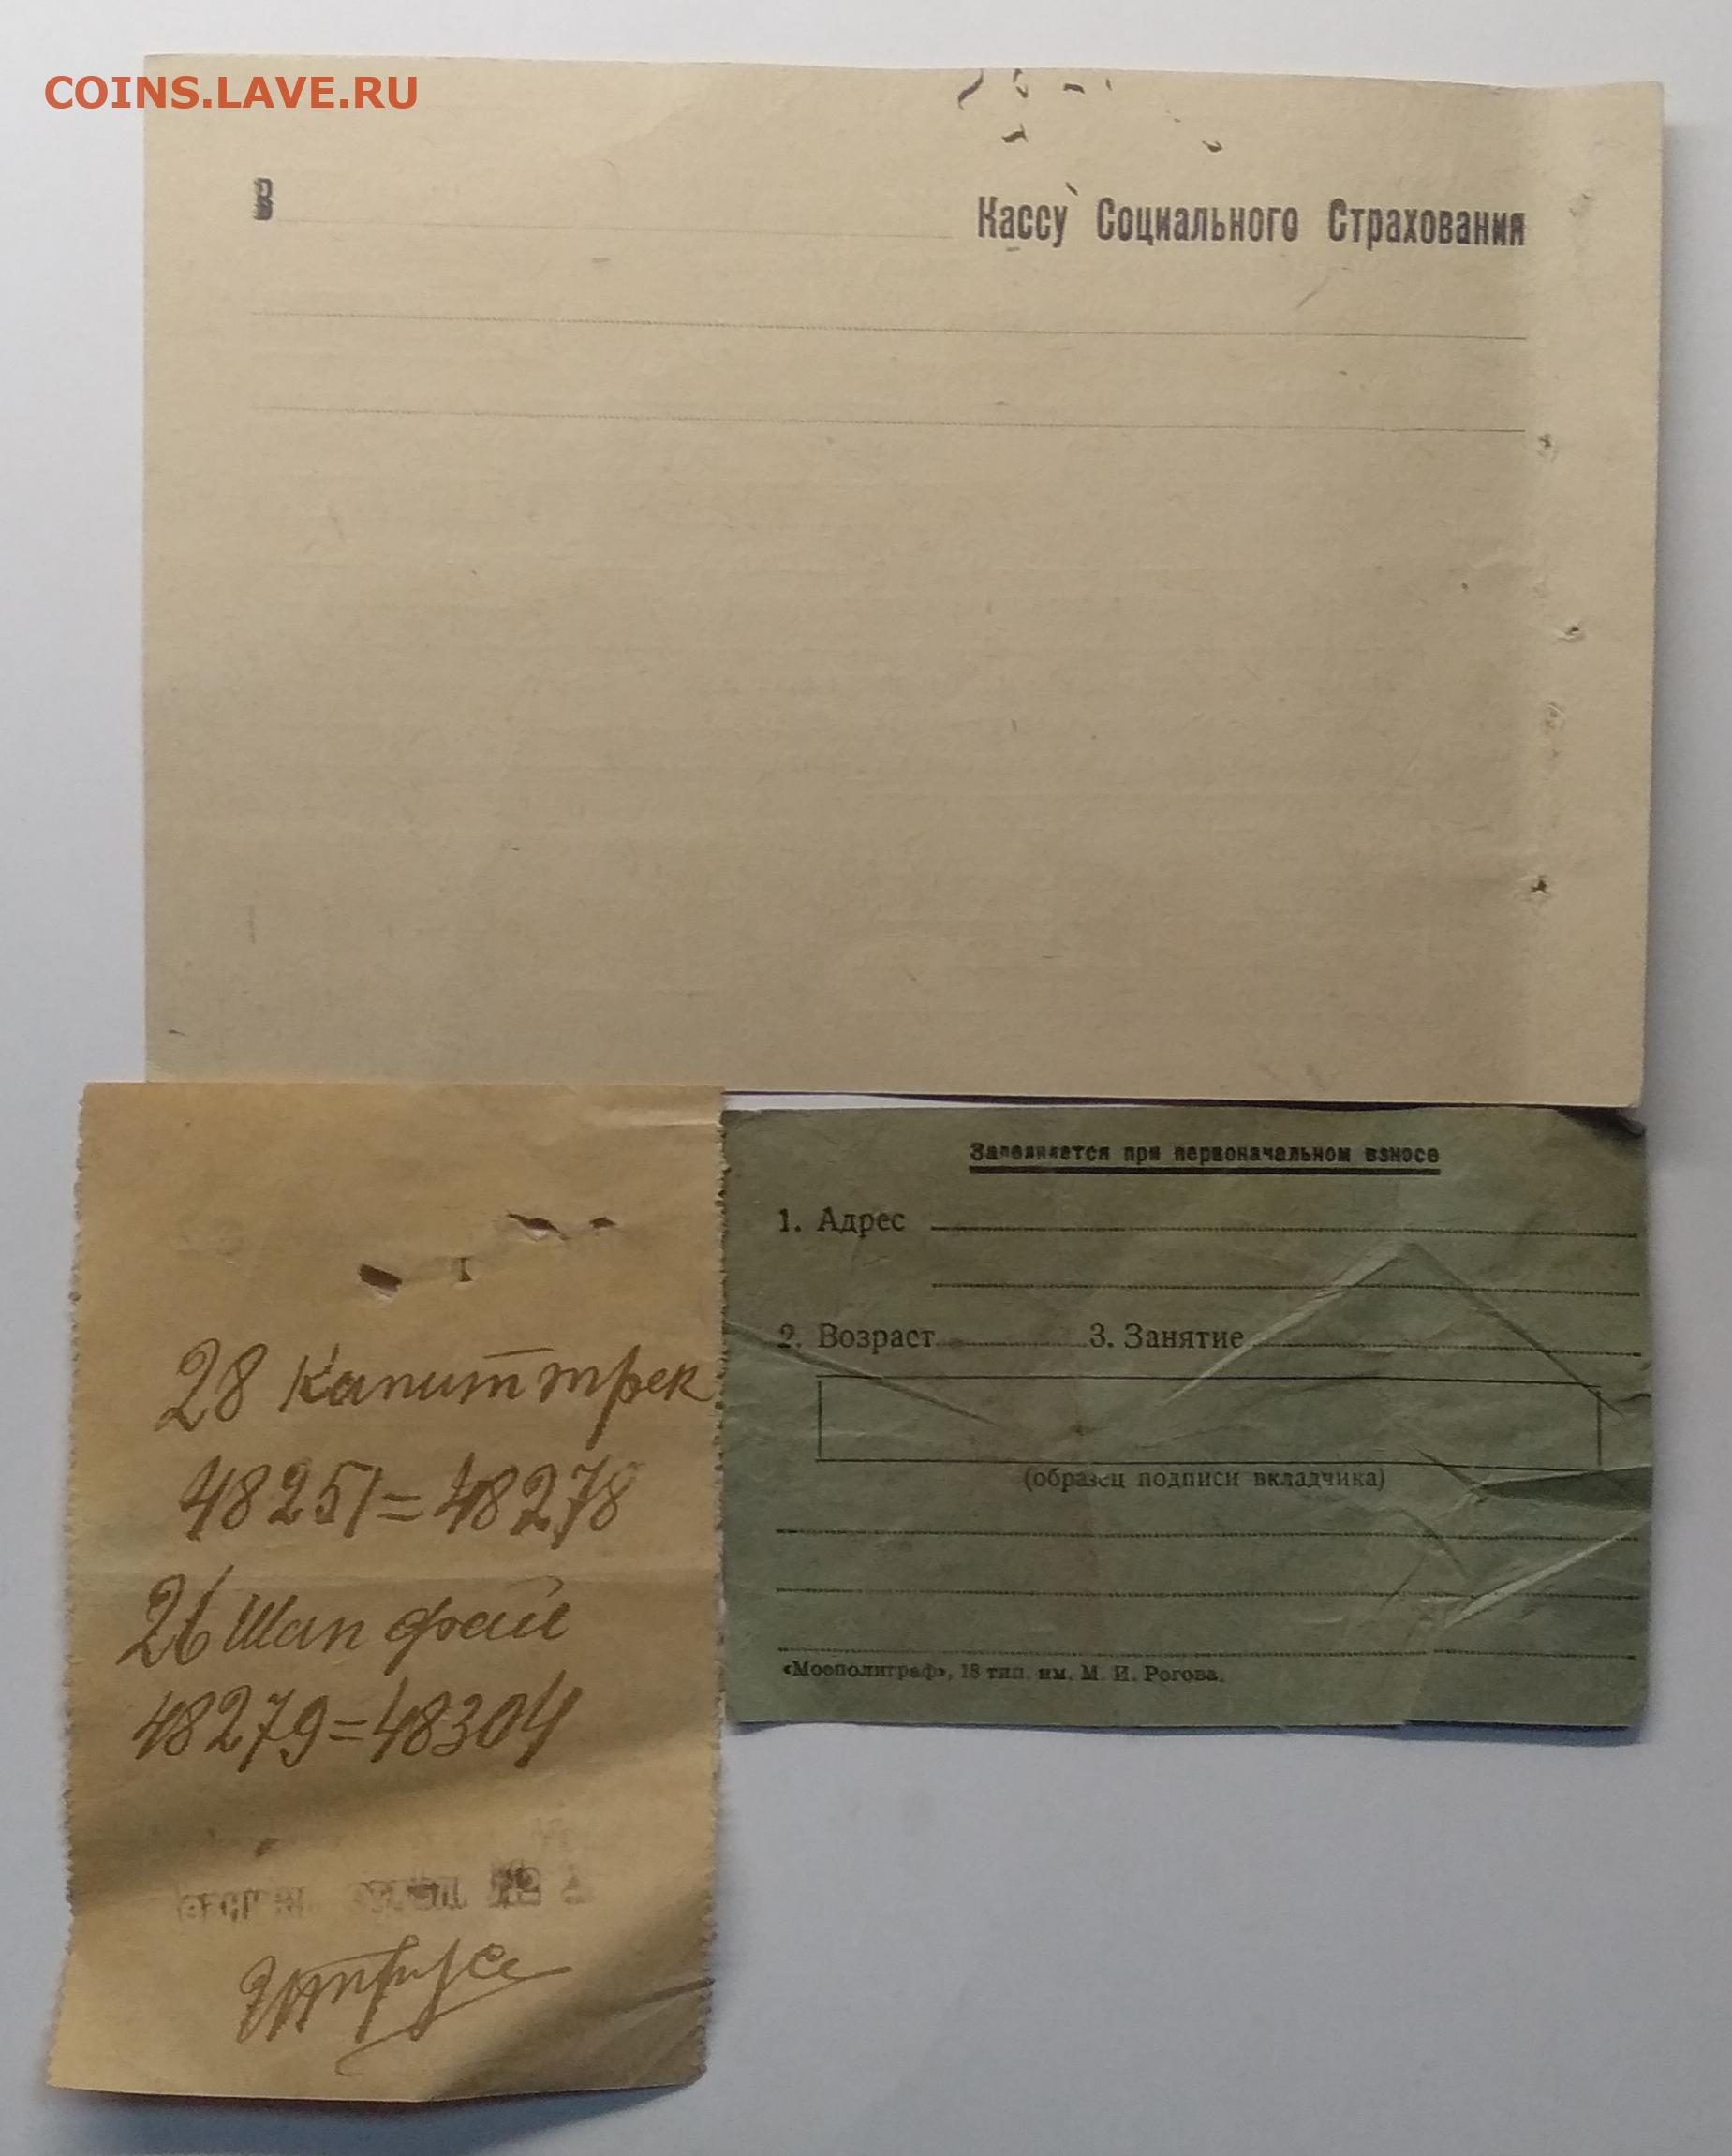 COINS.LAVE.RU
В Кассу Социального Страхования
28 Капит трек
48251=48278
26 Шап фай
48279=48304
Заполняется при первоначальном взносе
1. Адрес
2. Возраст 3. Занятие
(образец подписи вкладчика)
«Мосполиграф», 18 тип. им. М. И. Рогова.